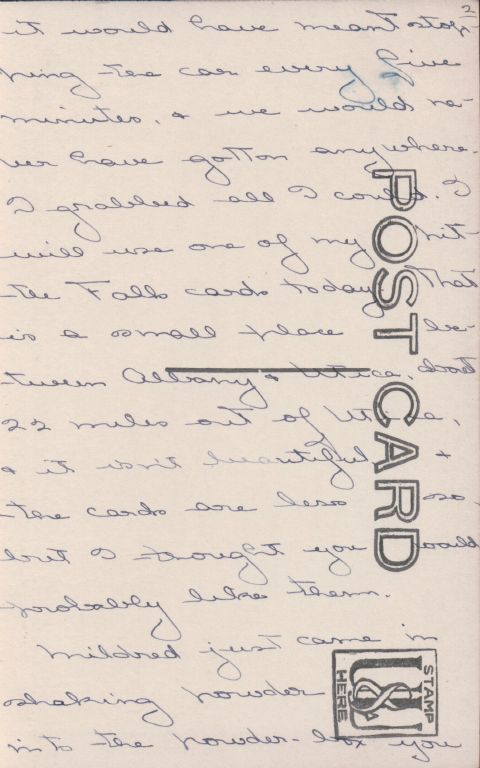 2
it would have meant stop-
ping the car every five
minutes, & we would ne-
ver have gotton anywhere.
I grabbed all I could. I
will use one of my Lit-
tle Falls cards today. That
is a small place be-
tween Albany & Utica, about
22 miles out of Utica,
& it isn't beautiful &
the cards are less so
but I thought you would
probably like them.
Mildred just came in
shaking powder
into the powder-box you
POST CARD
STAMP
HERE